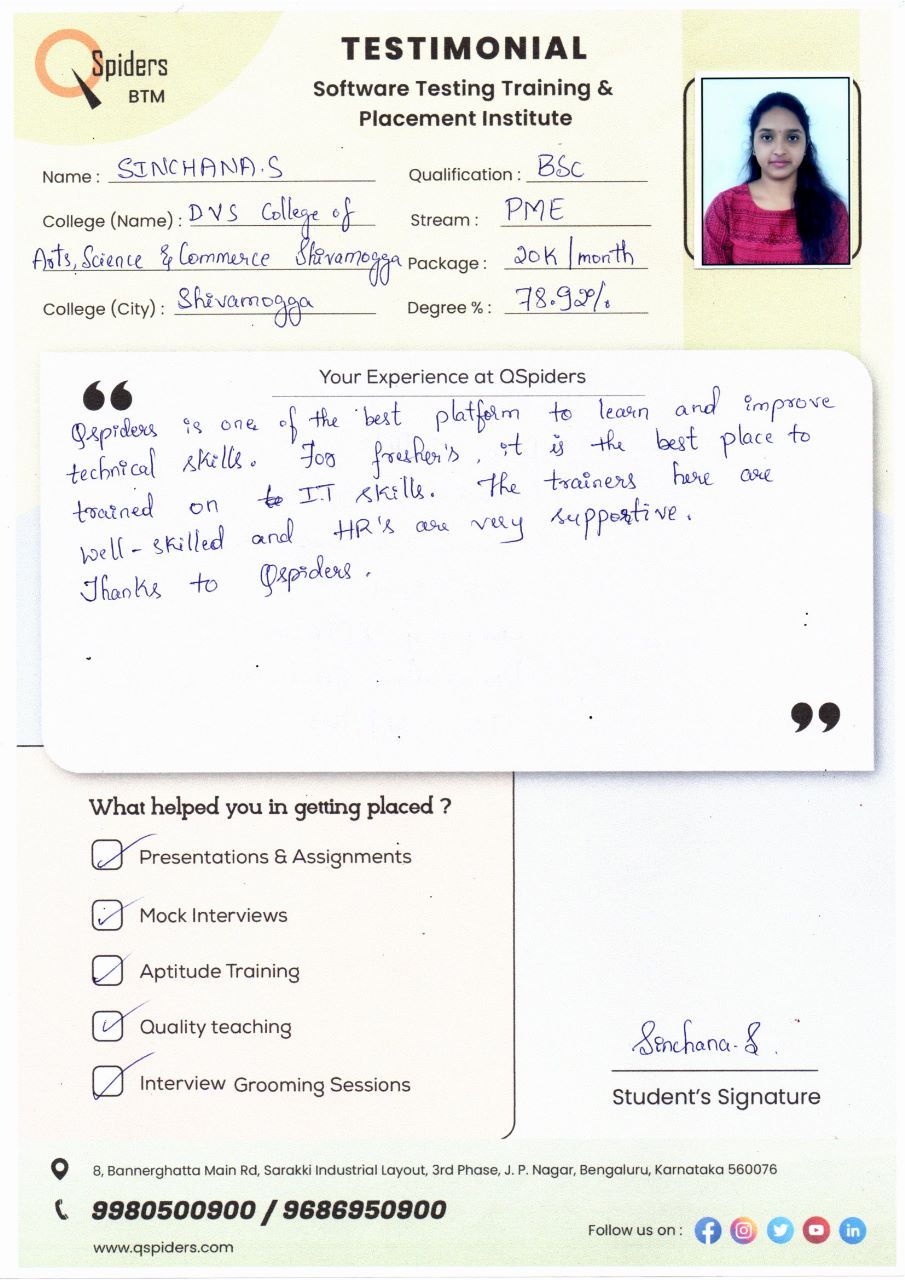 QSpiders
BTM
TESTIMONIAL
Software Testing Training &
Placement Institute
Name : SINCHANA.S
Qualification : BSc
College (Name) : DVS College of
Stream : PME
Arts, Science & Commerce Shivamogga
Package : 20K/month
College (City) : Shivamogga
Degree % : 78.92%
Your Experience at QSpiders
Qspiders is one of the best platform to learn and improve
technical skills. For fresher's, it is the best place to
trained on IT skills. The trainers here are
well-skilled and HR's are very supportive.
Thanks to Qspiders.
What helped you in getting placed ?
Presentations & Assignments
Mock Interviews
Aptitude Training
Quality teaching
Interview Grooming Sessions
Sinchana.S.
Student's Signature
8, Bannerghatta Main Rd, Sarakki Industrial Layout, 3rd Phase, J. P. Nagar, Bengaluru, Karnataka 560076
9980500900 / 9686950900
www.qspiders.com
Follow us on :